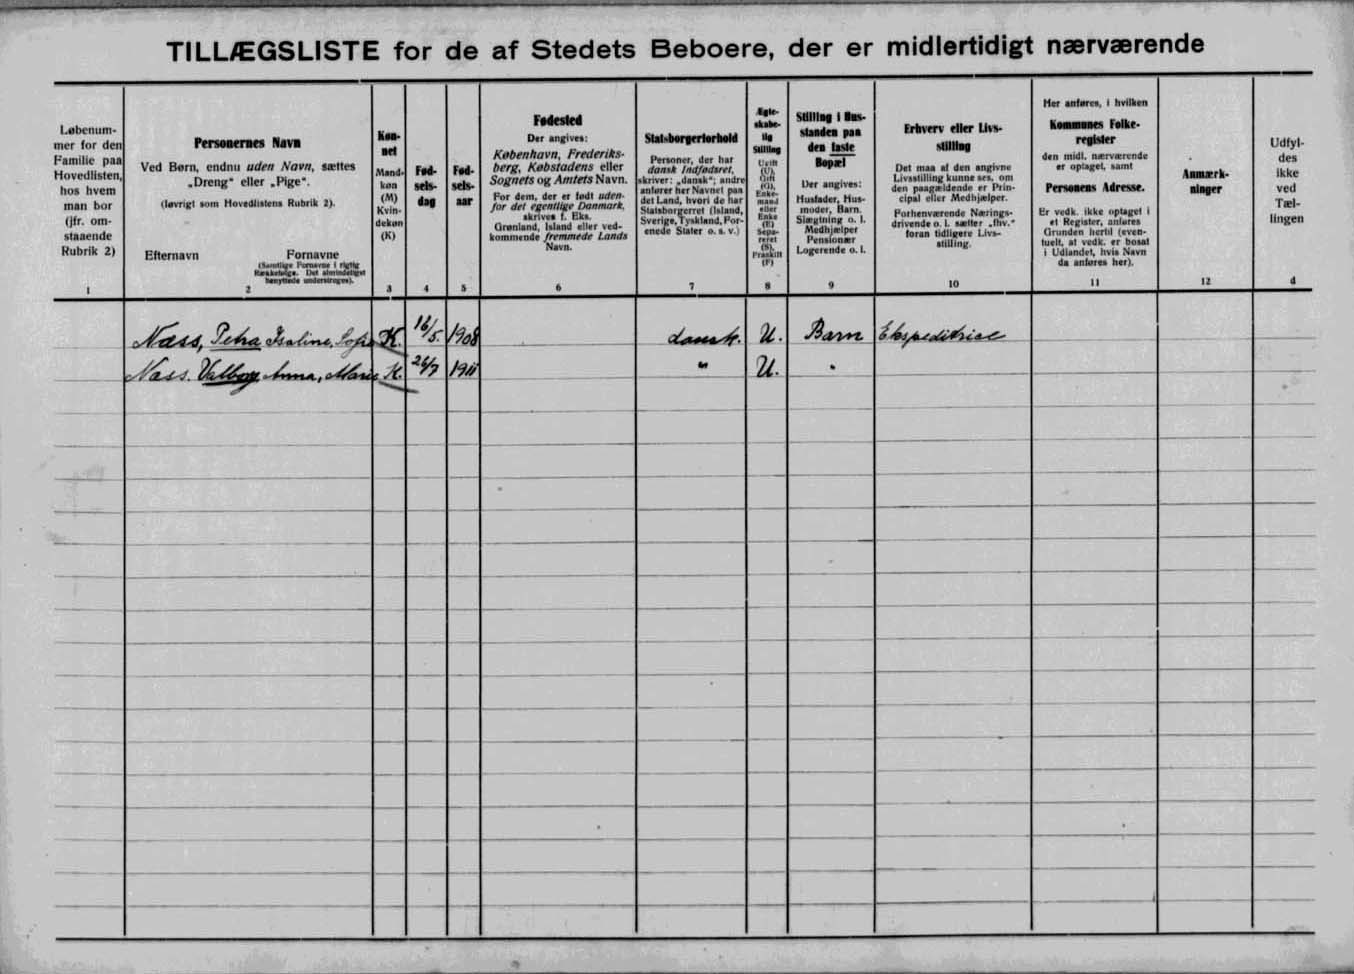 TILLÆGSLISTE for de af Stedets Beboere, der er midlertidigt nærværende
Løbenum-
mer for den
Familie paa
Hovedlisten,
hos hvem
man bor
(jfr. om-
staaende
Rubrik 2)
1
Personernes Navn
Ved Børn, endnu uden Navn, sættes
„Dreng“ eller „Pige“.
(Iøvrigt som Hovedlistens Rubrik 2).
Efternavn Fornavne
(Samtlige Fornavne i rigtig
Rækkefølge. Det almindeligst
benyttede understreges).
2
Køn-
net
Mand-
køn
(M)
Kvin-
dekøn
(K)
3
Fød-
sels-
dag
4
Fød-
sels-
aar
5
Fødested
Der angives:
København, Frederiks-
berg, Købstadens eller
Sognets og Amtets Navn.
For dem, der er født uden-
for det egentlige Danmark,
skrives f. Eks.
Grønland, Island eller ved-
kommende fremmede Lands
Navn.
6
Statsborgerforhold
Personer, der har
dansk Indfødsret,
skriver: „dansk“; andre
anfører her Navnet paa
det Land, hvori de har
Statsborgerret (Island,
Sverige, Tyskland, For-
enede Stater o. s. v.)
7
Ægte-
skabe-
lig
Stilling
Ugift
(U),
Gift
(G),
Enke-
mand
eller
Enke
(E)
Sepa-
reret
(S),
Fraskilt
(F)
8
Stilling i Hus-
standen paa
den faste
Bopæl
Der angives:
Husfader, Hus-
moder, Barn,
Slægtning o. l.
Medhjælper
Pensionær
Logerende o. l.
9
Erhverv eller Livs-
stilling
Det maa af den angivne
Livsstilling kunne ses, om
den paagældende er Prin-
cipal eller Medhjælper.
Forhenværende Nærings-
drivende o. l. sætter „fhv.“
foran tidligere Livs-
stilling.
10
Her anføres, i hvilken
Kommunes Folke-
register
den midl. nærværende
er optaget, samt
Personens Adresse.
Er vedk. ikke optaget i
et Register, anføres
Grunden hertil (even-
tuelt, at vedk. er bosat
i Udlandet, hvis Navn
da anføres her).
11
Anmærk-
ninger
12
Udfyl-
des
ikke
ved
Tæl-
lingen
d
Næss, Petra Isaline, Sofie K. 16/5. 1908 dansk. U. Barn Ekspeditrice
Næss. Valborg Anna, Marie K. 26/7 1911 " U. "